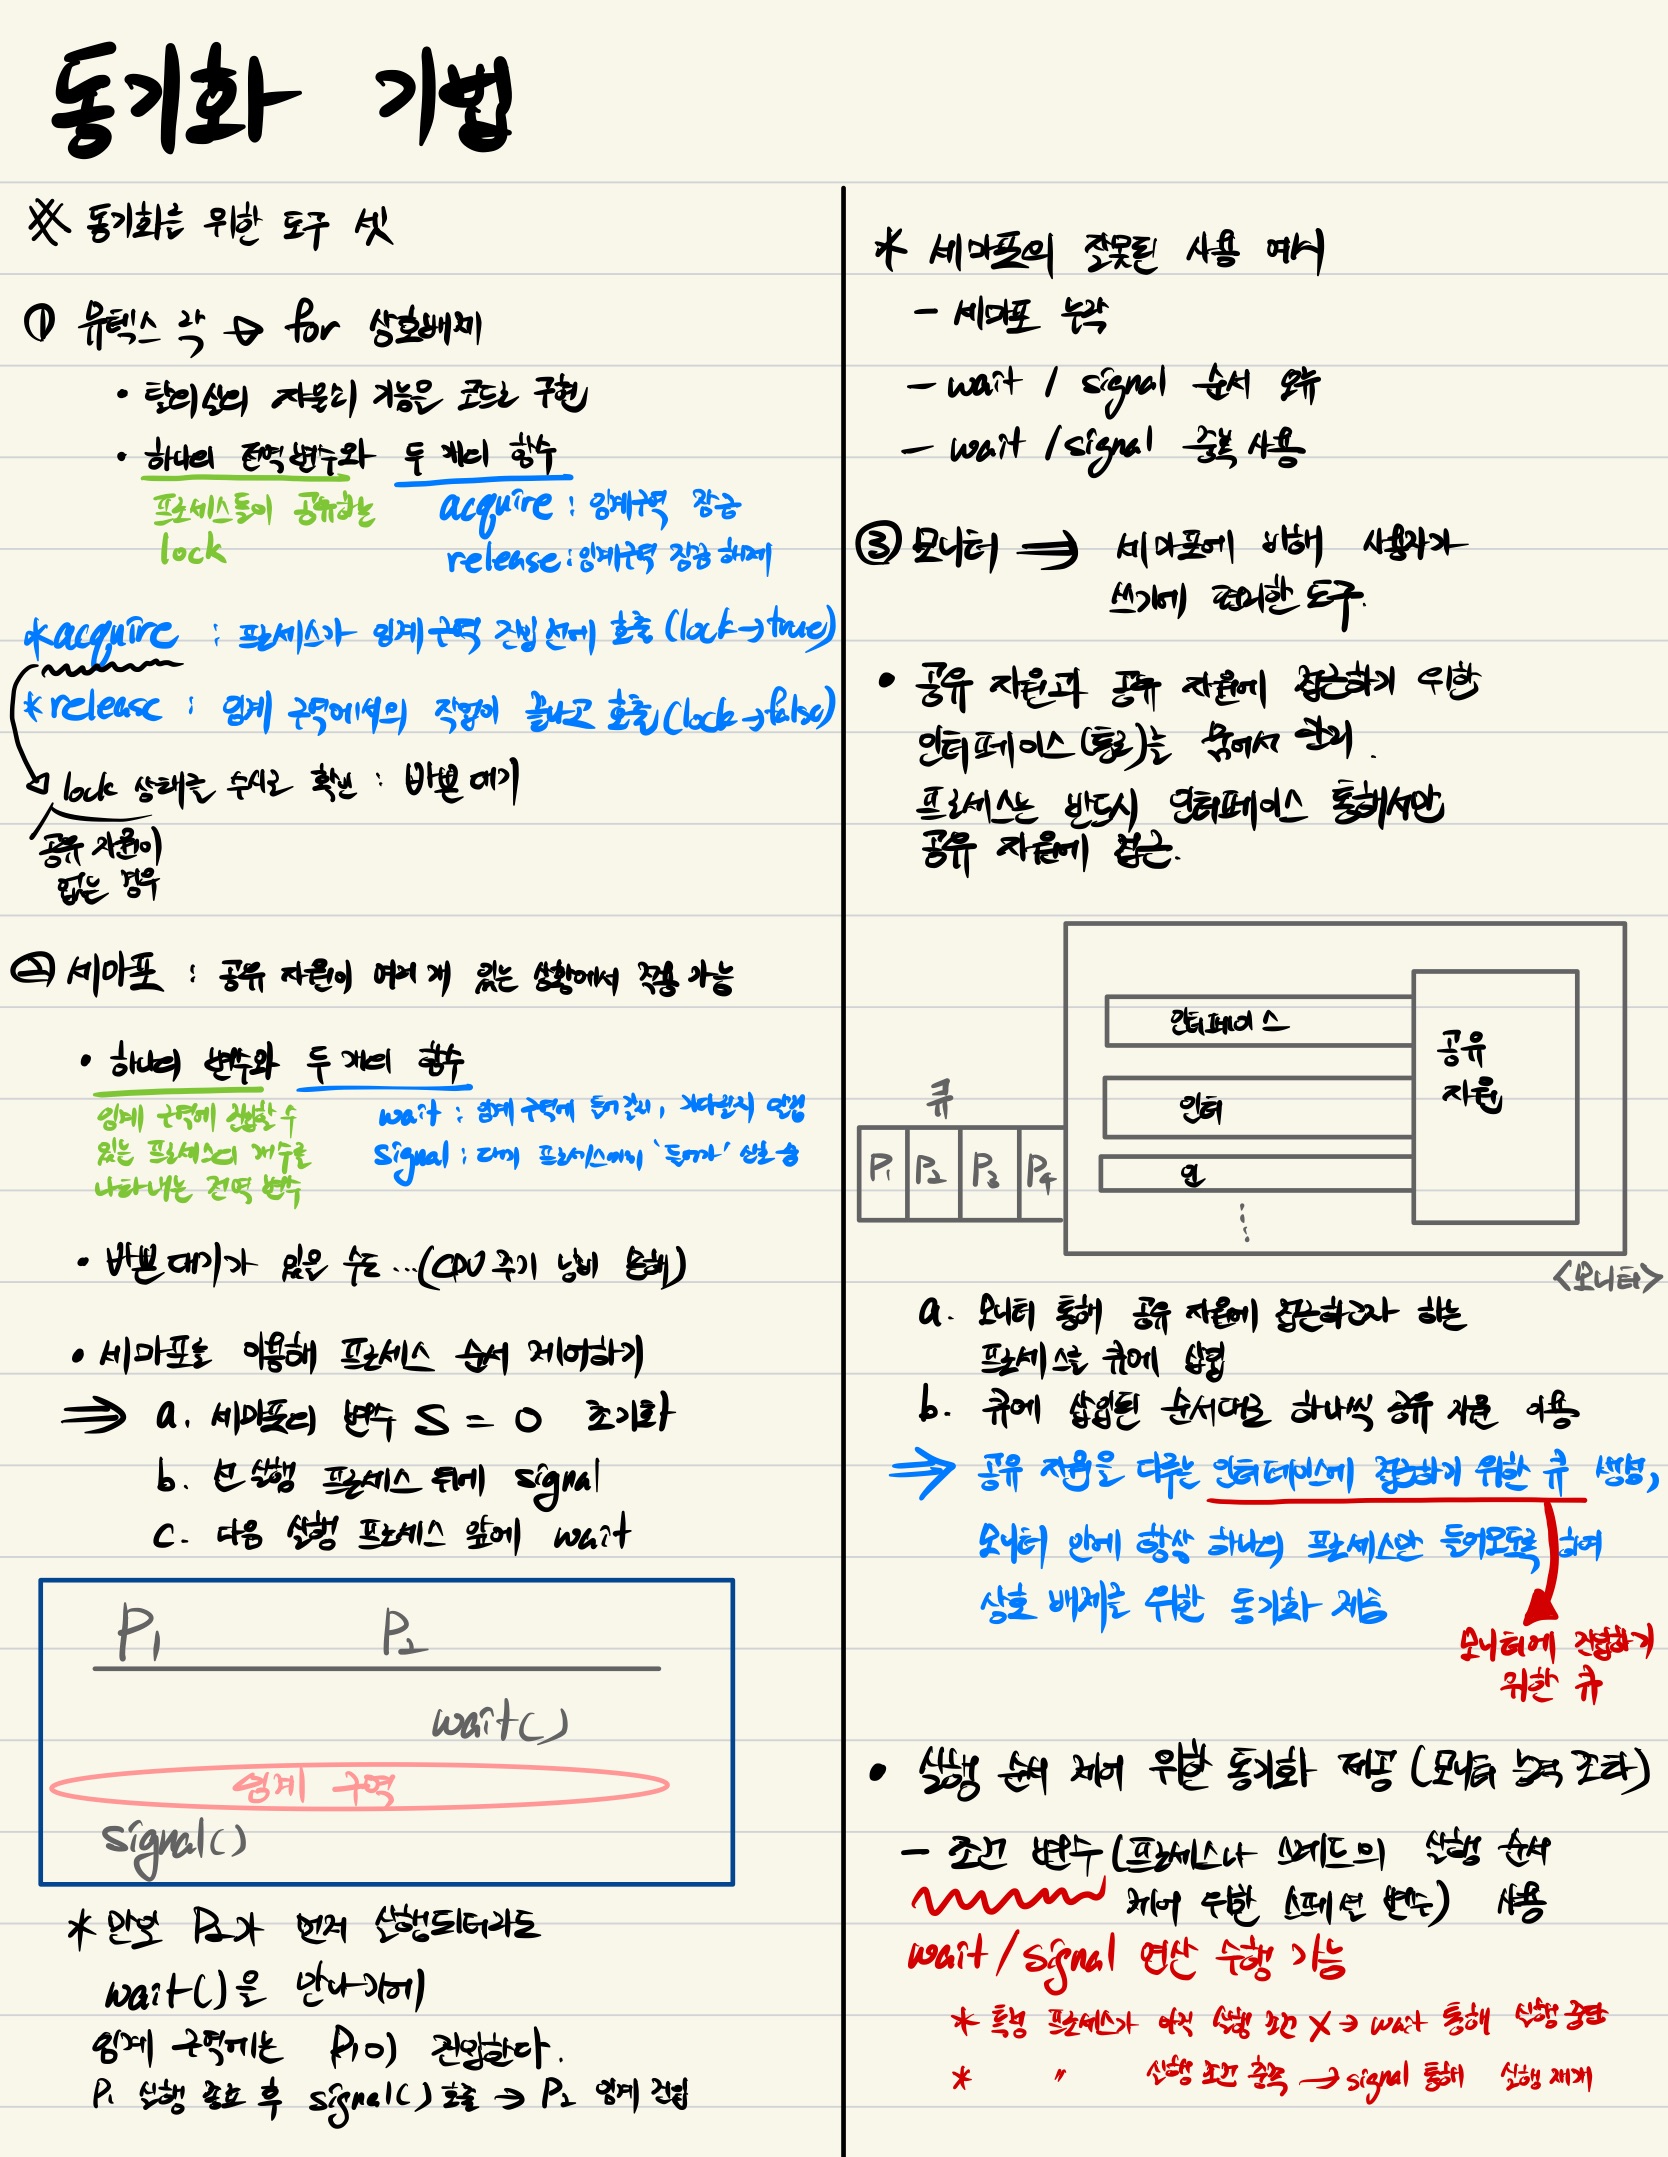 동기화 기법
※ 동기화를 위한 도구 셋
① 뮤텍스 락 → for 상호배제
• 탈의실의 자물쇠 기능을 코드로 구현
• 하나의 전역 변수와 두 개의 함수
프로세스들이 공유하는
lock
acquire : 임계구역 잠금
release : 임계구역 잠금 해제
*acquire : 프로세스가 임계구역 진입 전에 호출 (lock→true)
*release : 임계 구역에서의 작업이 끝나고 호출 (lock→false)
lock 상태를 수시로 확인 : 바쁜 대기
공유 자원이
없는 경우
② 세마포 : 공유 자원이 여러 개 있는 상황에서 적용 가능
• 하나의 변수와 두 개의 함수
임계 구역에 진입할 수
있는 프로세스의 개수를
나타내는 전역 변수
wait : 임계 구역에 들어갈지, 기다릴지 알려
signal : 대기 프로세스에게 '들어가' 신호
• 바쁜 대기가 있을 수도 …(CPU 주기 낭비 손해)
• 세마포를 이용해 프로세스 순서 제어하기
⇒ a. 세마포의 변수 S = 0 초기화
b. 선 실행 프로세스 뒤에 signal
c. 다음 실행 프로세스 앞에 wait
P1 P2
wait()
임계 구역
signal()
* 만일 P2가 먼저 실행되더라도
wait()을 만나기에
임계 구역에는 P1이 진입한다.
P1 실행 종료 후 signal() 호출 → P2 임계 진입
* 세마포의 잘못된 사용 예시
- 세마포 누락
- wait / signal 순서 오류
- wait / signal 중복 사용
③ 모니터 ⇒ 세마포에 비해 사용자가
쓰기에 편리한 도구.
• 공유 자원과 공유 자원에 접근하기 위한
인터페이스(통로)를 묶어서 관리.
프로세스는 반드시 인터페이스 통해서만
공유 자원에 접근.
인터페이스
인터
인
공유
자원
큐
P1 P2 P3 P4
<모니터>
a. 모니터 통해 공유 자원에 접근하고자 하는
프로세스를 큐에 삽입
b. 큐에 삽입된 순서대로 하나씩 공유 자원 이용
⇒ 공유 자원을 다루는 인터페이스에 접근하기 위한 큐 생성,
모니터 안에 항상 하나의 프로세스만 들어오도록 하여
상호 배제를 위한 동기화 제공
모니터에 진입하기
위한 큐
• 실행 순서 제어 위한 동기화 제공 (모니터
- 조건 변수 (프로세스나 스레드의 실행 순서
제어 위한 스페셜 변수) 사용
wait / signal 연산 수행 가능
* 특정 프로세스가 아직 실행 조건 X → wait 통해 실행 중단
* 〃 실행 조건 충족 → signal 통해 실행 재개